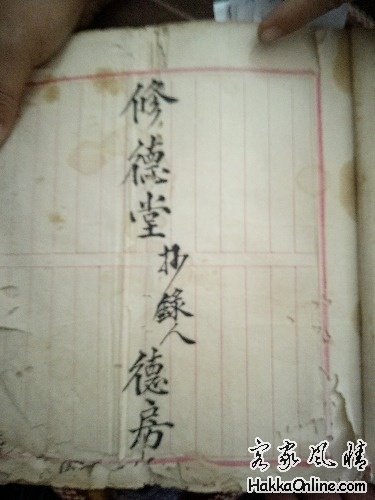 修德堂抄錄人德房
客家风情
HakkaOnline.com